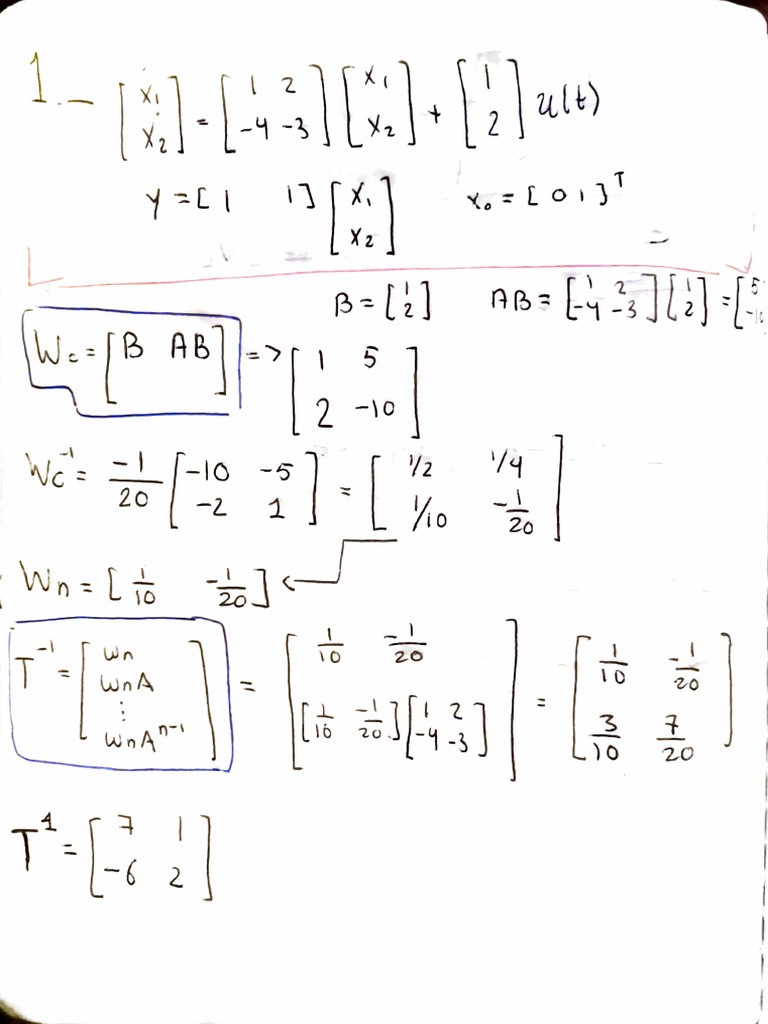 1.- [ẋ₁ ẋ₂] = [1 2; -4 -3] [x₁ x₂] + [1 2] u(t)
y = [1 1] [x₁ x₂] x₀ = [0 1]ᵀ
B = [1 2] AB = [1 2; -4 -3] [1 2] = [5 -10
Wc = [B AB] => [1 5; 2 -10]
Wc⁻¹ = -1/20 [-10 -5; -2 1] = [1/2 1/4; 1/10 -1/20]
Wn = [1/10 -1/20]
T⁻¹ = [wn; wnA; ⋮; wnAⁿ⁻¹] = [1/10 -1/20; [1/10 -1/20] [1 2; -4 -3]] = [1/10 -1/20; 3/10 7/20]
T¹ = [7 1; -6 2]